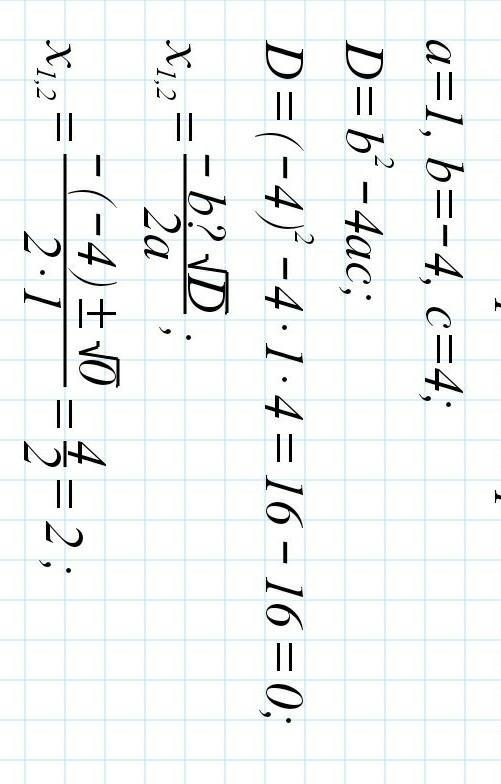 a=1, b=−4, c=4;
D=b²−4ac;
D=(−4)²−4·1·4=16−16=0;
x₁,₂=(−b?√D)/(2a);
x₁,₂=(−(−4)±√0)/(2·1)=4/2=2;